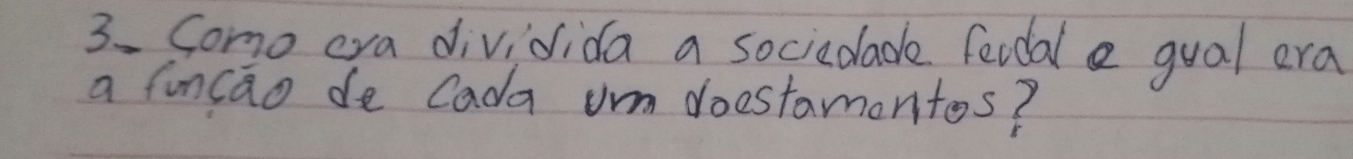 3- Como era dividida a sociedade feudal e qual era
a função de cada um doestamentos?